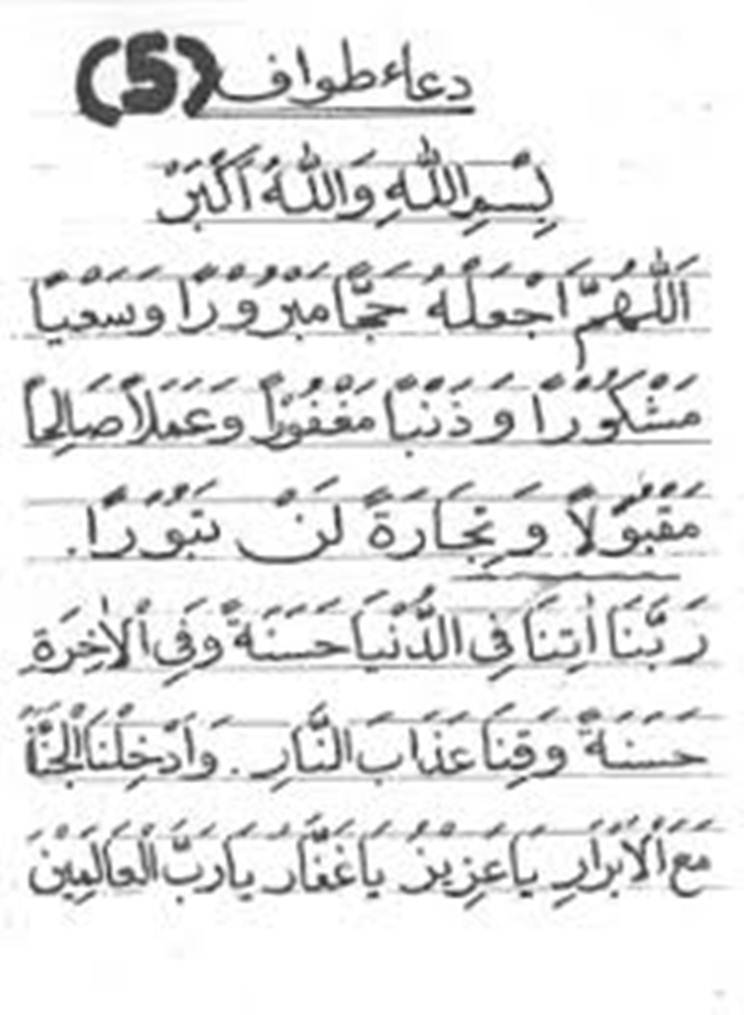 دعاء طواف (5)
بِسْمِ اللهِ وَاللهُ اَكْبَرْ
اَللّٰهُمَّ اجْعَلْهُ حَجًّا مَبْرُوْرًا وَسَعْيًا
مَشْكُوْرًا وَذَنْبًا مَغْفُوْرًا وَعَمَلاً صَالِحًا
مَقْبُوْلاً وَتِجَارَةً لَنْ تَبُوْرًا.
رَبَّنَا اٰتِنَا فِى الدُّنْيَا حَسَنَةً وَفِى اْلاٰخِرَةِ
حَسَنَةً وَقِنَا عَذَابَ النَّارِ. وَاَدْخِلْنَا الْجَنَّةَ
مَعَ اْلاَبْرَارِ يَا عَزِيْزُ يَا غَفَّارُ يَارَبَّ الْعَالَمِيْنَ